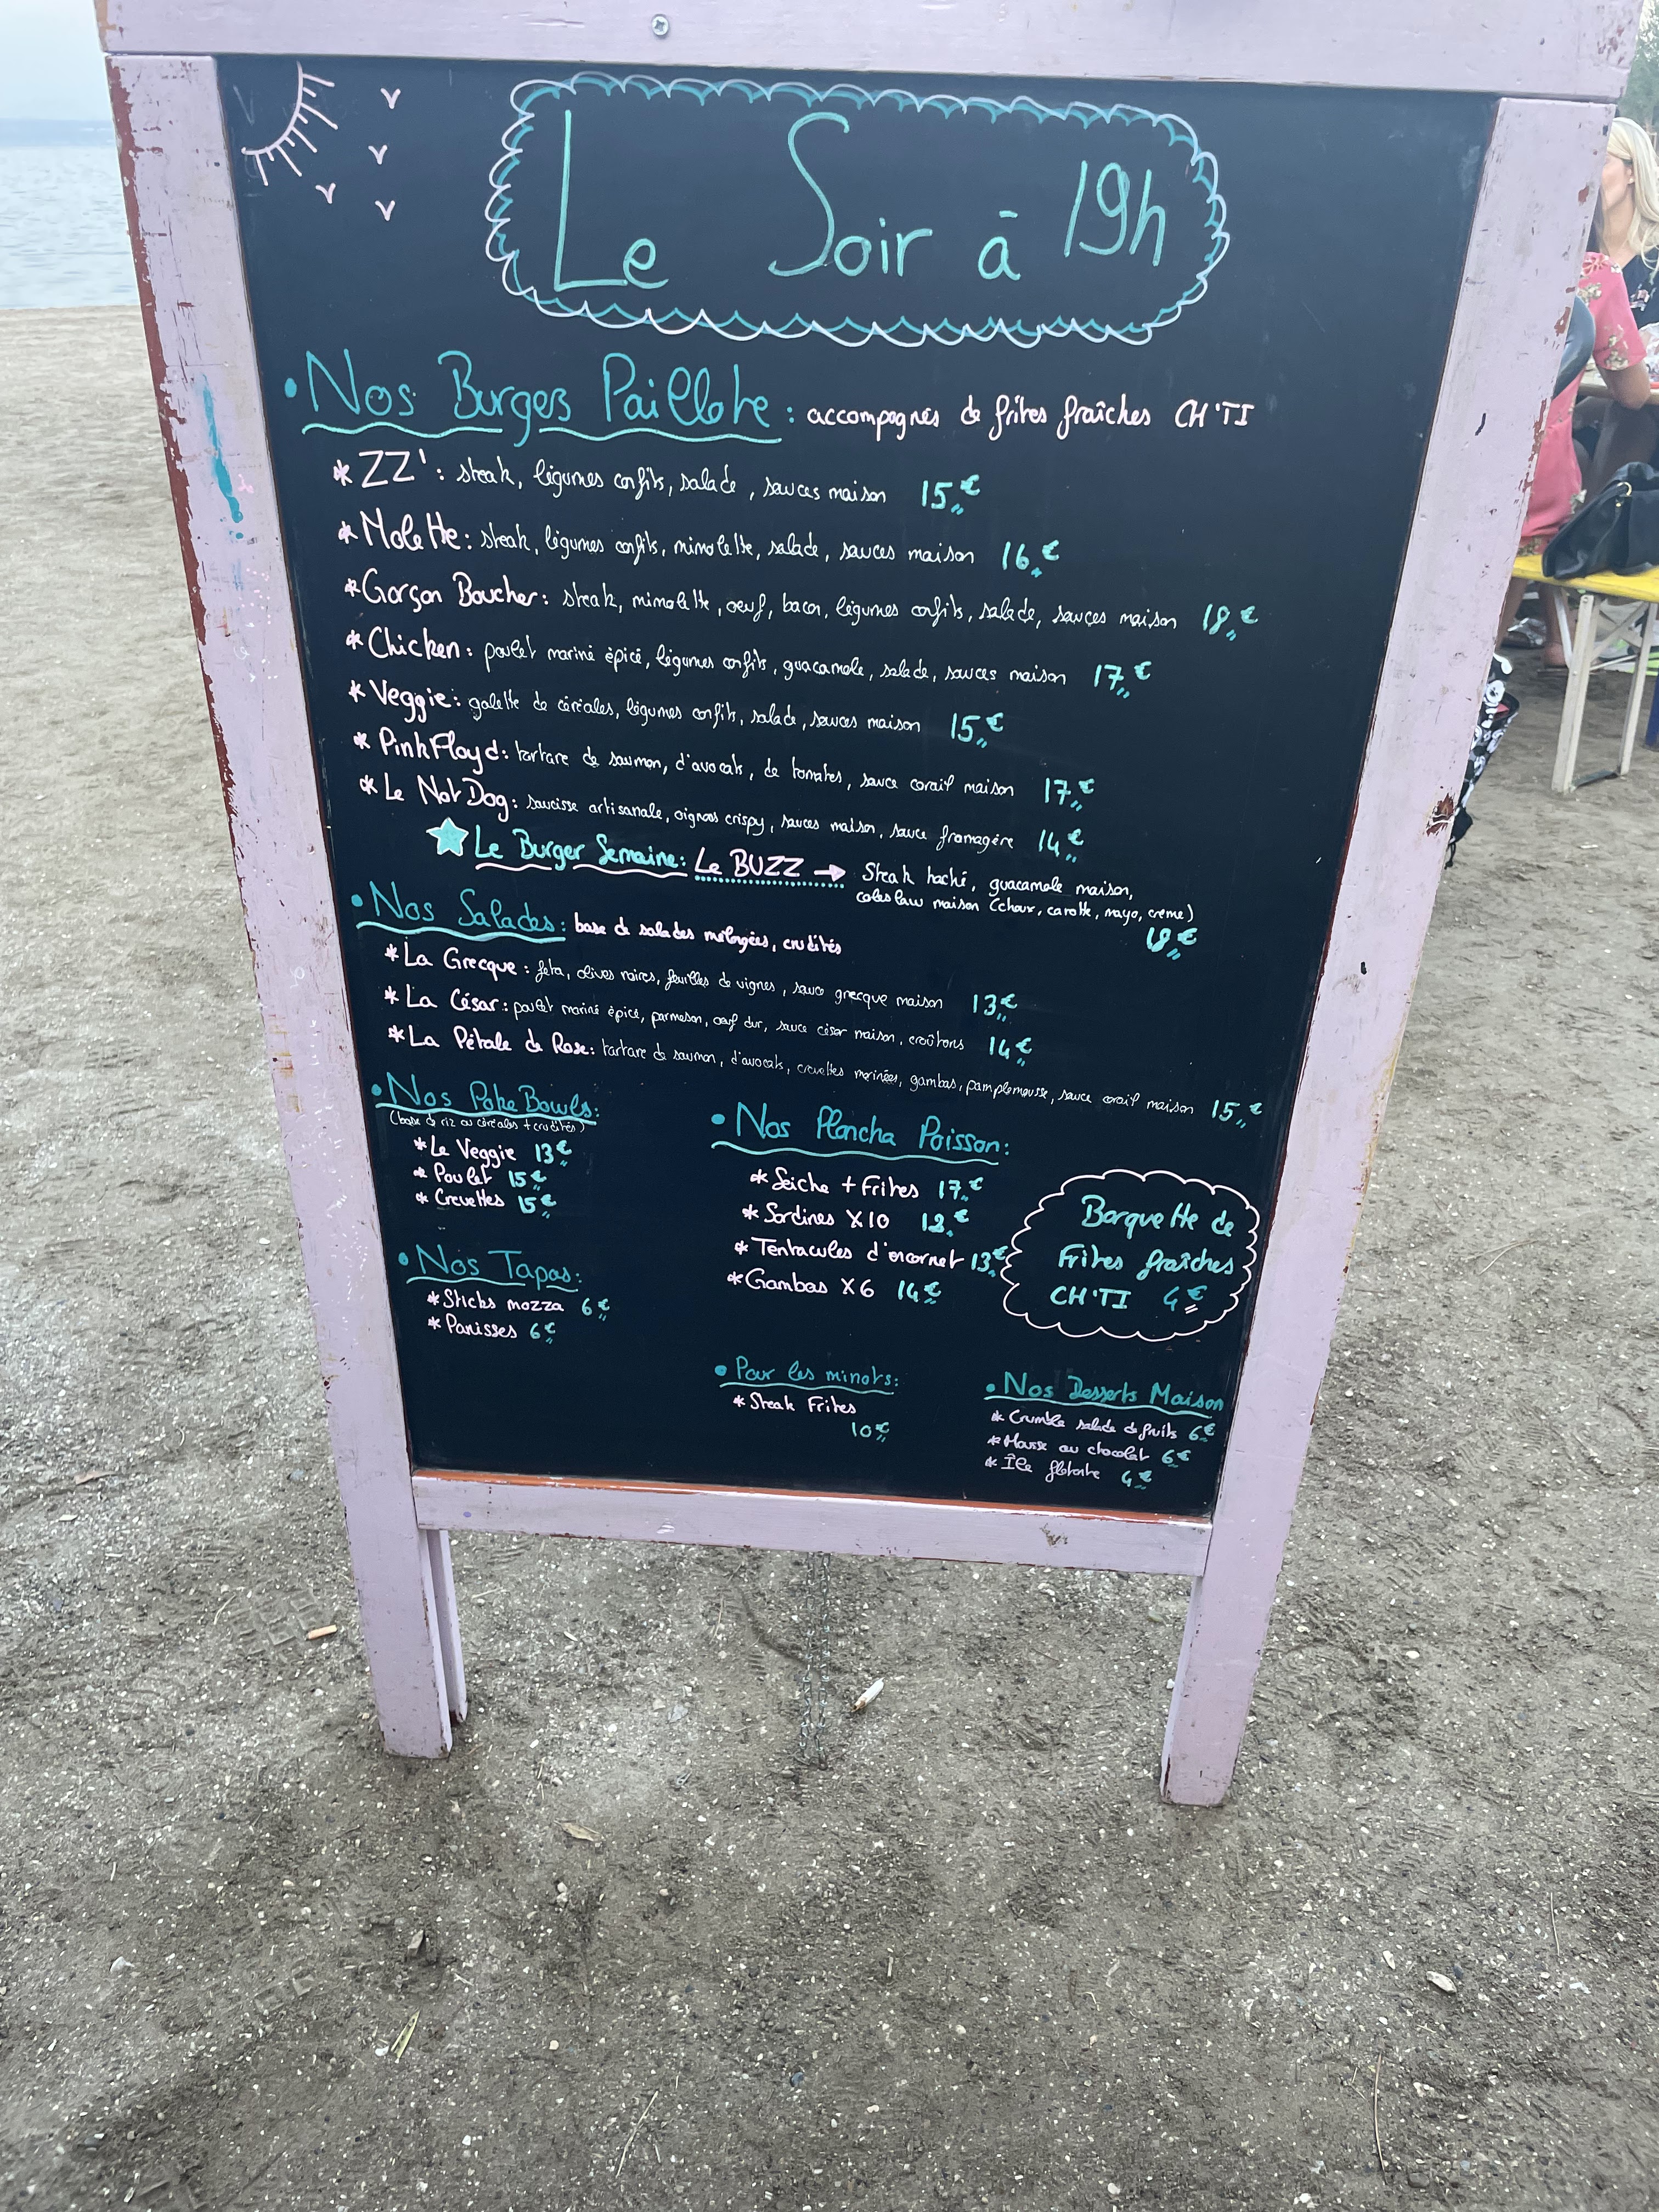 Le Soir à 19h
• Nos Burgers Paillote : accompagnés de frites fraîches CH'TI
* ZZ' : steak, légumes confits, salade, sauces maison 15€
* Molette : steak, légumes confits, mimolette, salade, sauces maison 16€
* Garçon Boucher : steak, mimolette, oeuf, bacon, légumes confits, salade, sauces maison 18€
* Chicken : poulet mariné épicé, légumes confits, guacamole, salade, sauces maison 17€
* Veggie : galette de céréales, légumes confits, salade, sauces maison 15€
* PinkFloyd : tartare de saumon, d'avocats, de tomates, sauce corail maison 17€
* Le Not Dog : saucisse artisanale, oignons crispy, sauces maison, sauce fromagère 14€
Le Burger Semaine : Le BUZZ → Steak haché, guacamole maison,
coleslaw maison (choux, carotte, mayo, crème)
18€
• Nos Salades : base de salades mélangées, crudités
* La Grecque : feta, olives noires, feuilles de vignes, sauce grecque maison 13€
* La César : poulet mariné épicé, parmesan, oeuf dur, sauce césar maison, croûtons 14€
* La Pétale de Rose : tartare de saumon, d'avocats, crevettes marinées, gambas, pamplemousse, sauce corail maison 15€
• Nos Poke Bowls :
(base de riz ou céréales + crudités)
* Le Veggie 13€
* Poulet 15€
* Crevettes 15€
• Nos Tapas :
* Sticks mozza 6€
* Panisses 6€
• Nos Plancha Poisson :
* Seiche + Frites 17€
* Sardines X10 12€
* Tentacules d'encornet 13€
* Gambas X6 14€
Barquette de
Frites fraîches
CH'TI 4€
• Pour les minots :
* Steak Frites
10€
• Nos Desserts Maison
* Crumble salade de fruits 6€
* Mousse au chocolat 6€
* Île flotante 4€